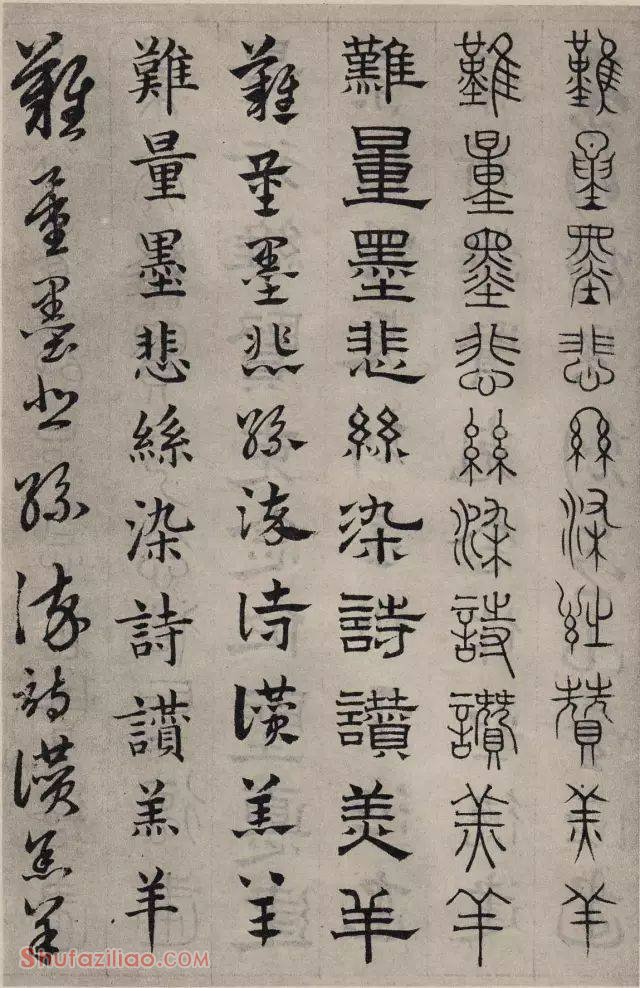 難量墨悲絲染詩讚羔羊
難量墨悲絲染詩讚羔羊
難量墨悲絲染詩讚羔羊
難量墨悲絲染詩讚羔羊
難量墨悲絲染詩讚羔羊
難量墨悲絲染詩讚羔羊
Shufaziliao.com